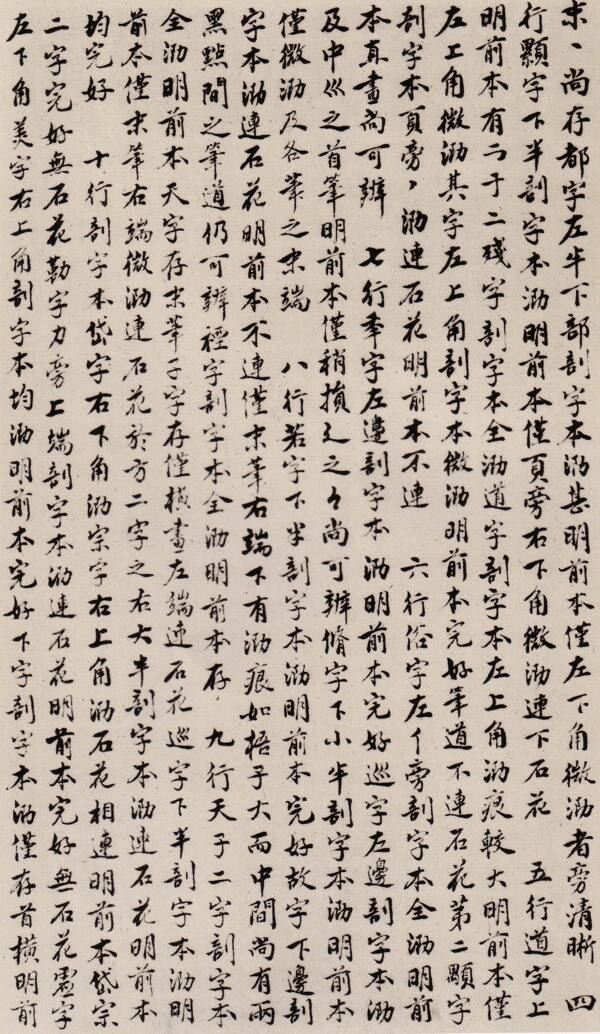 末丶尚存都字左半下部剖字本泐甚明前本僅左下角微泐者旁清晰　四
行顯字下半剖字本泐明前本僅頁旁右下角微泐連下石花　五行道字上
明前本有二于二殘字剖字本全泐道字剖字本左上角泐痕較大明前本僅
左上角微泐其字左上角剖字本微泐明前本完好筆道不連石花第二顯字
剖字本頁旁丿泐連石花明前本不連　六行俗字左亻旁剖字本全泐明前
本直畫尚可辨　七行率字左邊剖字本泐明前本完好巡字左邊剖字本泐
及中巛之首筆明前本僅稍損辶之々尚可辨脩字下小半剖字本泐明前本
僅微泐及各筆之末端　八行若字下半剖字本泐明前本完好故字下邊剖
字本泐連石花明前本不連僅末筆右端下有泐痕如梧子大而中間尚有兩
黑點間之筆道仍可辨禋字剖字本全泐明前本存　九行天子二字剖字本
全泐明前本天字存末筆子字存僅橫畫左端連石花巡字下半剖字本泐明
前本僅末筆右端微泐連石花於方二字之右大半剖字本泐連石花明前本
均完好　十行剖字本岱字右下角泐宗字右上角泐石花相連明前本岱宗
二字完好無石花勤字力旁上端剖字本泐連石花明前本完好無石花靈字
左下角美字右上角剖字本均泐明前本完好下字剖字本泐僅存首橫明前